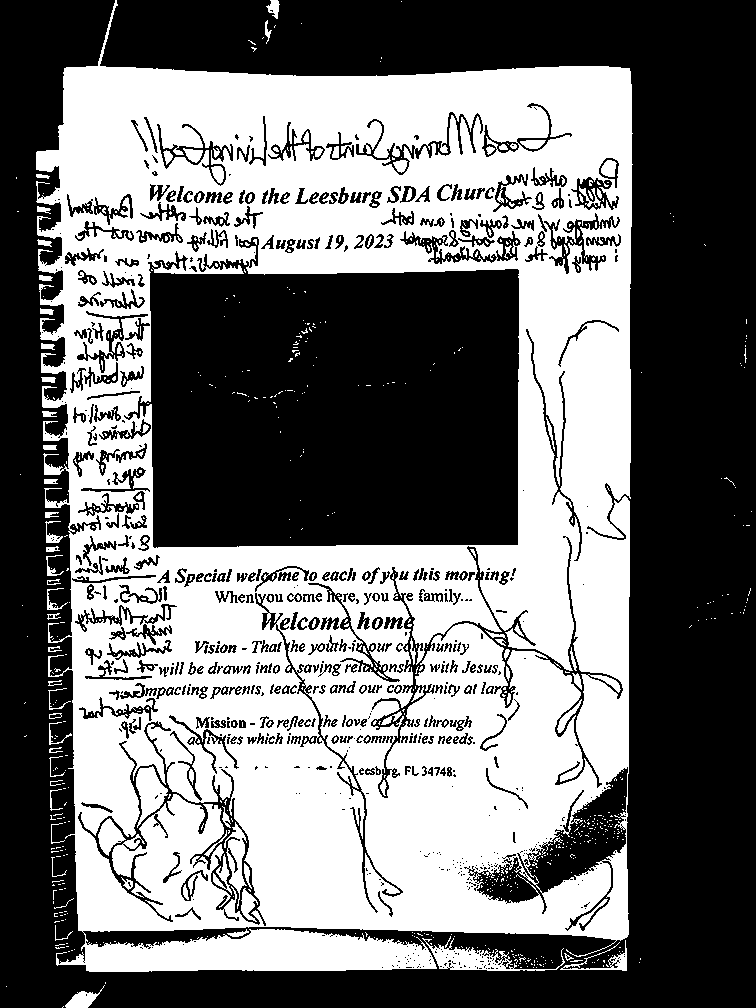 Good Morning Saints of the Living God!!
Welcome to the Leesburg SDA Church
August 19, 2023
Peggy asked me
what i do & took
umbrage w/ me saying i am both
unemployed & a drop out & suggest
i apply for the
The Sound of the Baptismal
pool filling drowns out the
hymnals; there is an intense
smell of
chlorine
The baptism
of Angela
was beautiful
The smell of
Chlorine is
burning my
eyes;
Pastor Scott
said hi to me
& it made
me smile!!
II Cor 5. 1-8
That Mortality
might be
swallowed up
of Life
Guest
speaker has
lisp
A Special welcome to each of you this morning!
When you come here, you are family...
Welcome home
Vision - That the youth in our community
will be drawn into a saving relationship with Jesus,
impacting parents, teachers and our community at large.
Mission - To reflect the love of Jesus through
activities which impact our communities needs.
Leesburg, FL 34748;